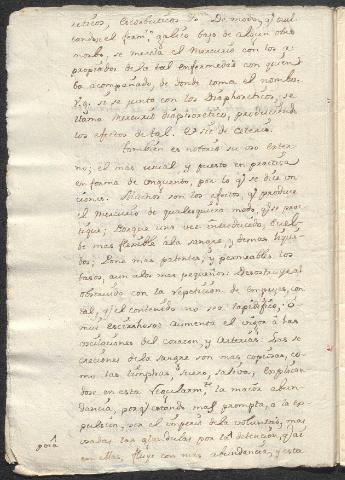 reticos, Escorbuticos &. De modo, q.e ocul
tandose el ferm.to galico bajo de algun otro
morbo, se mezcla el Mercurio con los a
propiados de la tal enfermedad con quien
ba acompañado, de donde toma el nombre.
V.g. si se junta con los Diaphoreticos, se
llama Mercurio diaphoretico, produciendo
los efectos de tal. Et sic de ceteris.
tambien es notorio su uso exter
no; el mas usual, y puesto en practica
en forma de Unguento, por lo q.e se dice un
ciones. Muchos son los efectos, q.e produce
el Mercurio de qualesquiera modo, q.e se prac
tique; Porque una vez introducido, buel
be mas flexible a la sangre, y demas liqui
dos; Pone mas patentes, y permeables los
basos, aun a los mas pequeños: Desostruye al
obstruido con la repeticion de empujes, con
tal, q.e el contenido no sea lapidifico, ó
mui escirrhoso: aumenta el vigor á las
oscilaciones del corazon, y Arterias. Las se
creciones de la sangre son mas copiosas, có
mo las limphas, suero, saliva, empleçan
dose en esta regularm.te la maior abun
dancia, porq.e estando mas prompta, a la ex
pulsion, por el imperio de la voluntad, mas
las glandulas por la detencion, q.e ai
en ellas, fluye con mas abundancia, y esta